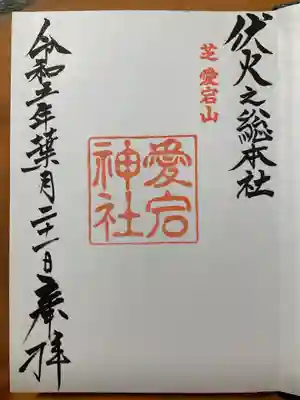 伏火之総本社
芝 愛宕山
愛宕神社
令和五年葉月二十一日奉拝